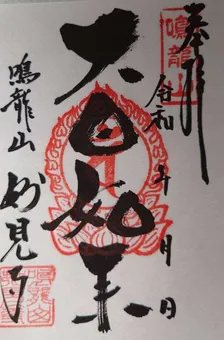 奉拝
令和 年 月 日
大日如来
鳴龍山 妙見寺
鳴龍山